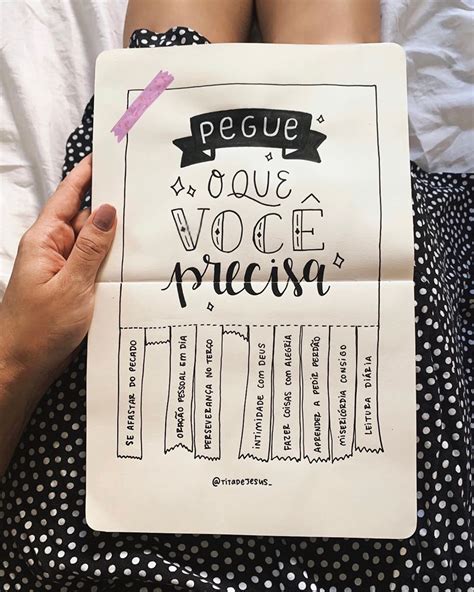 PEGUE
O QUE
VOCÊ
precisa
SE AFASTAR DO PECADO
ORAÇÃO PESSOAL EM DIA
PERSEVERANÇA NO TERÇO
INTIMIDADE COM DEUS
FAZER COISAS COM ALEGRIA
APRENDER A PEDIR PERDÃO
MISERICÓRDIA CONSIGO
LEITURA DIÁRIA
@TITADEJESUS_